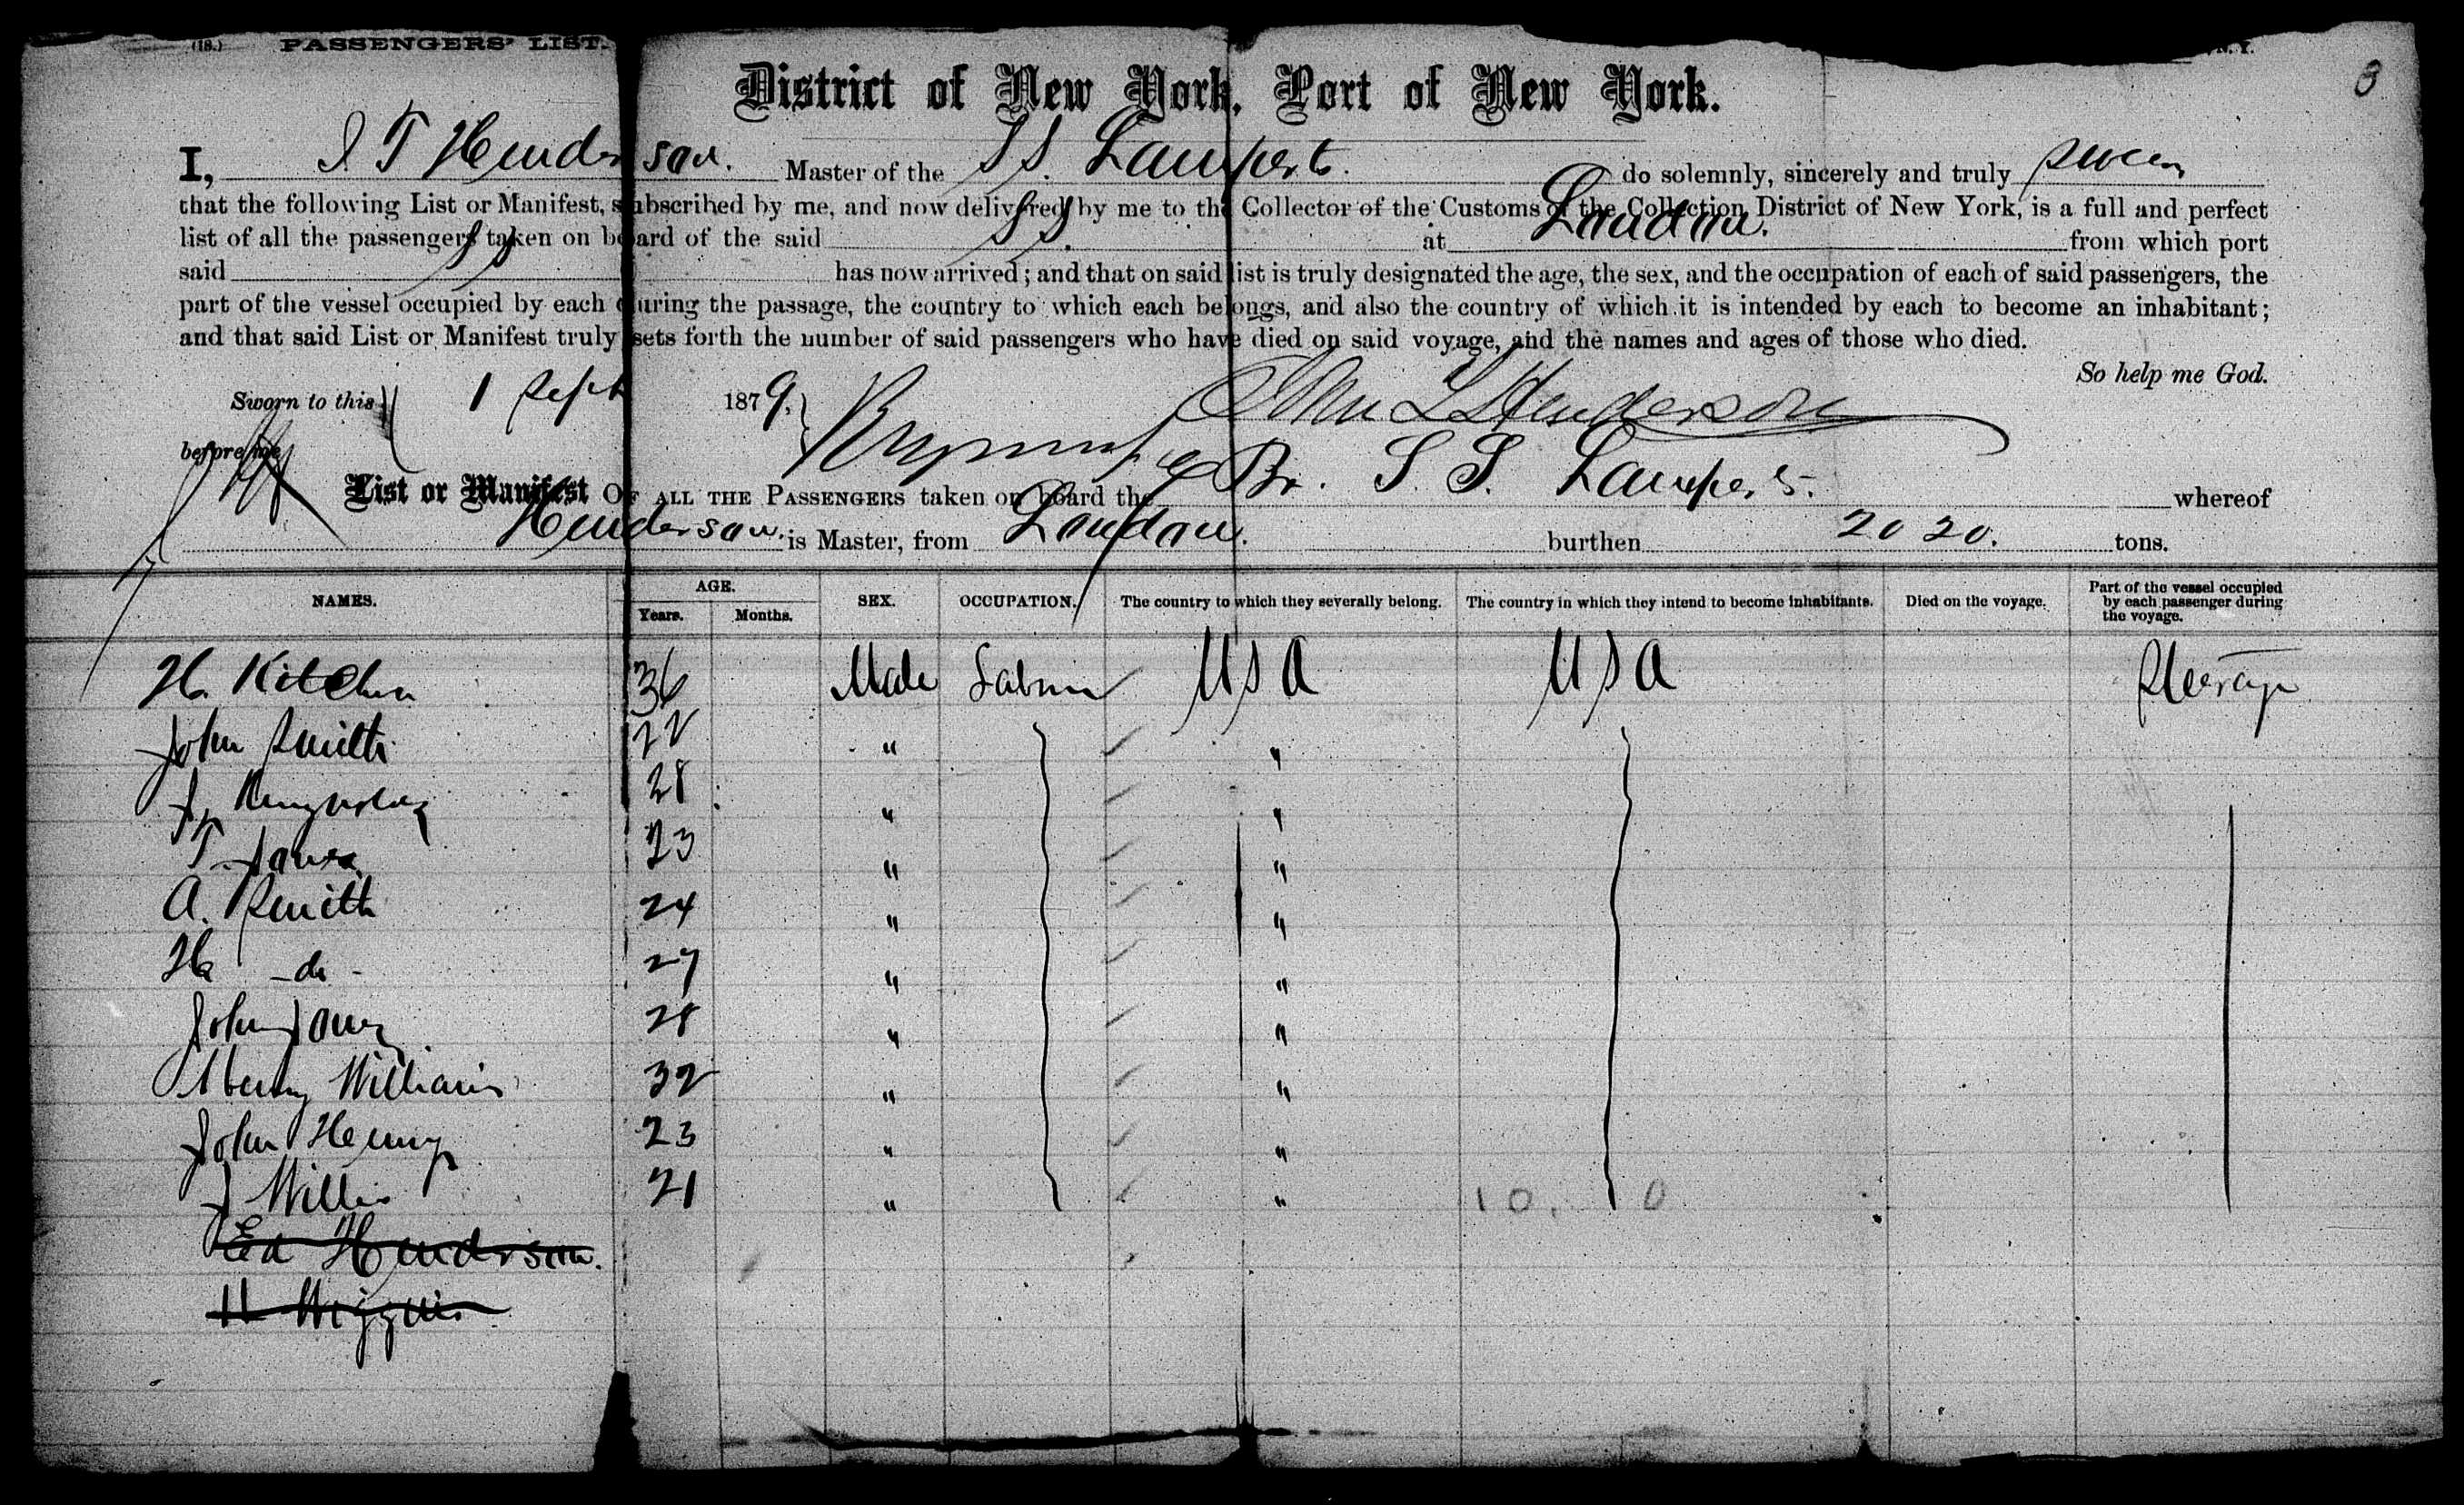 (18.) PASSENGERS' LIST. N. Y.
3
District of New York, Port of New York.
I, J T Henderson. Master of the SS. Lauperts. do solemnly, sincerely and truly swear
that the following List or Manifest, subscribed by me, and now delivered by me to the Collector of the Customs of the Collection District of New York, is a full and perfect
list of all the passengers taken on board of the said SS. at London. from which port
said SS has now arrived; and that on said list is truly designated the age, the sex, and the occupation of each of said passengers, the
part of the vessel occupied by each during the passage, the country to which each belongs, and also the country of which it is intended by each to become an inhabitant;
and that said List or Manifest truly sets forth the number of said passengers who have died on said voyage, and the names and ages of those who died.
So help me God.
Sworn to this 1 Sept 1879. Henderson
before me
List or Manifest OF ALL THE PASSENGERS taken on board the Br. S. S. Lauperts. whereof
Henderson. is Master, from London. burthen 2020. tons.
NAMES. AGE. Years. Months. SEX. OCCUPATION. The country to which they severally belong. The country in which they intend to become inhabitants. Died on the voyage. Part of the vessel occupied by each passenger during the voyage.
H. Kitchen 36 Male USA USA Steerage
John Smith 22 " "
J. 28 " "
T. Jones 23 " "
A. Smith 24 " "
H -do- 27 " "
John Jones 28 " "
Henry Williams 32 " "
John Henry 23 " "
J Willis 21 " " 10. 0
Ed Henderson.
H Higgins